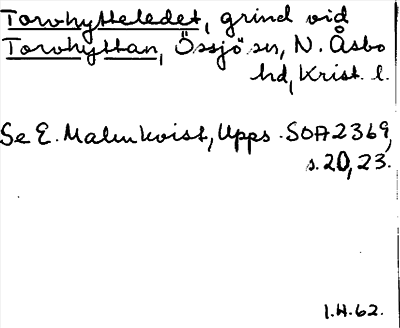 Torvhytteledet, grind vid
Torvhyttan, Össjö sn, N. Åsbo
hd, Krist. l.
Se E. Malmkvist, Upps. SOA2369,
s.20,23.
I.H.62.